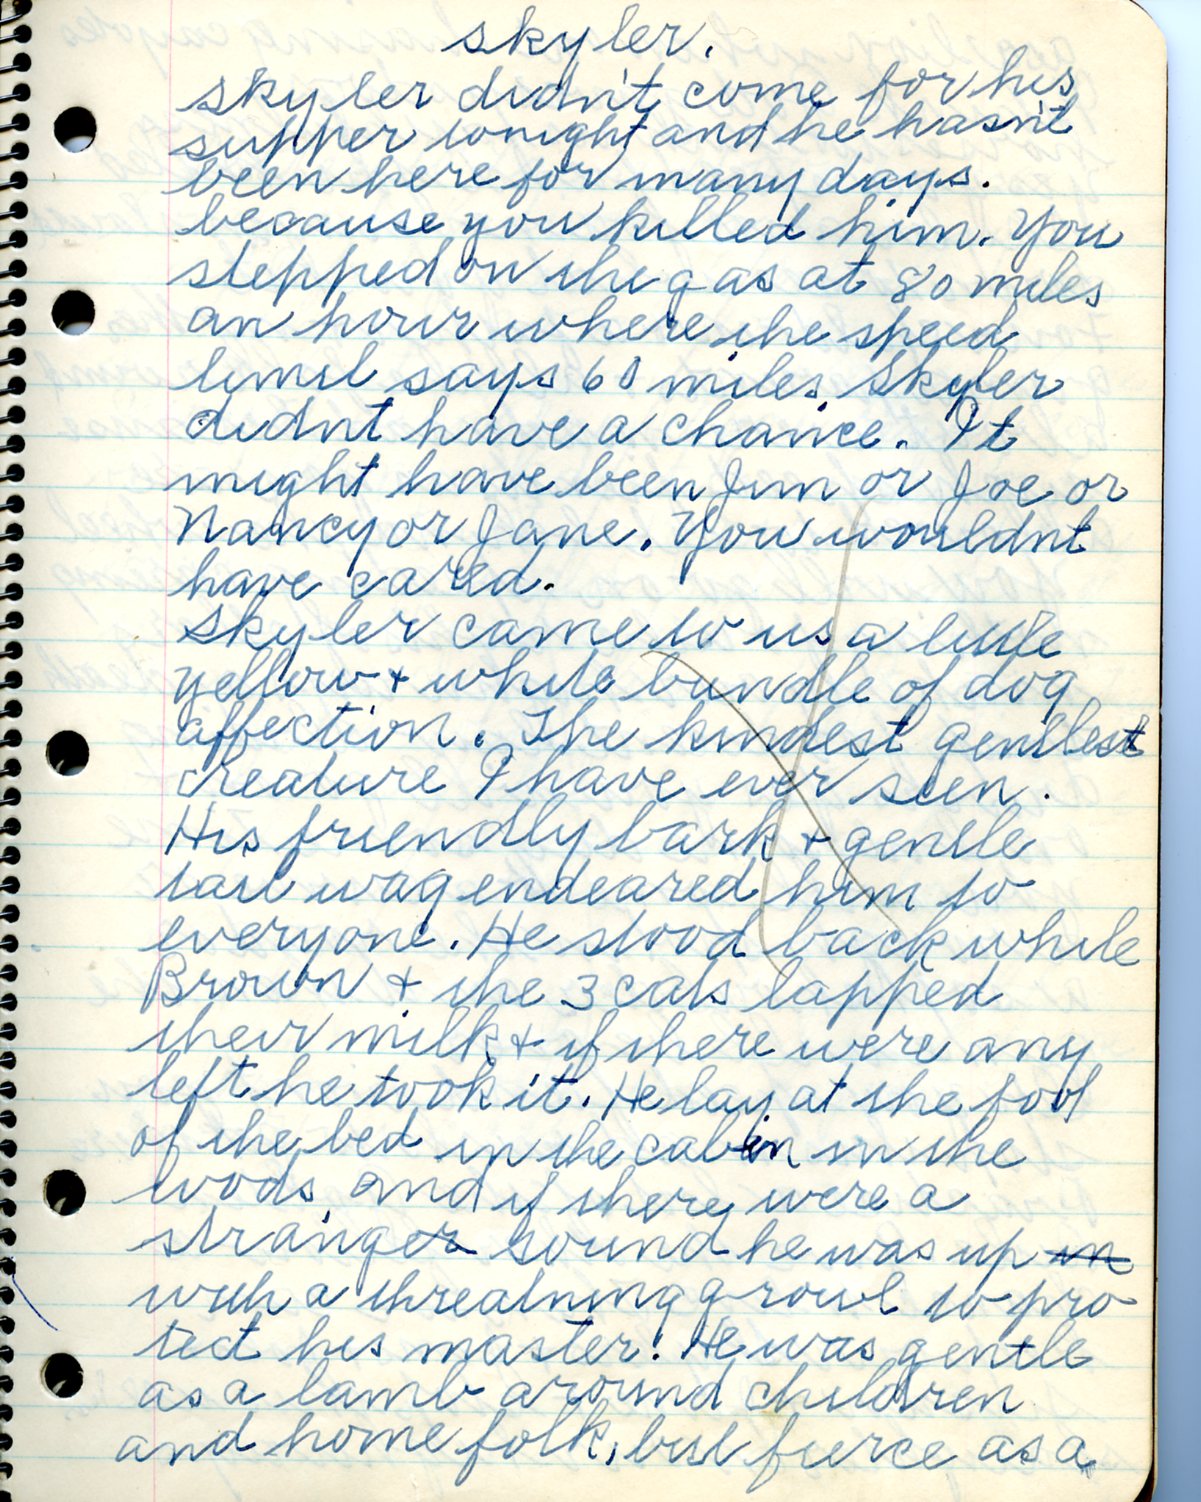 Skyler.
Skyler didn't come for his
supper tonight and he hasn't
been here for many days.
because you killed him. You
stepped on the gas at 80 miles
an hour where the speed
limit says 60 miles. Skyler
didnt have a chance. It
might have been Jim or Joe or
Nancy or Jane. You wouldnt
have cared.
Skyler came to us a little
yellow + white bundle of dog
affection. The kindest gentlest
creature I have ever seen.
His friendly bark + gentle
tail wag endeared him to
everyone. He stood back while
Brown + the 3 cats lapped
their milk + if there were any
left he took it. He lay at the foot
of the bed in the cabin in the
woods and if there were a
stranger sound he was up in
with a threatning growl to pro
tect his master. He was gentle
as a lamb around children
and home folk, but fierce as a